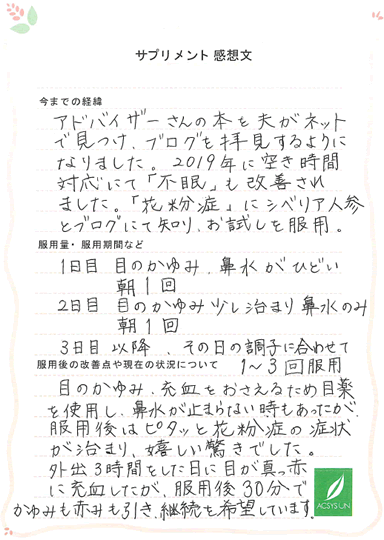 サプリメント 感想文
今までの経緯
アドバイザーさんの本を夫がネット
で見つけ、ブログを拝見するように
なりました。2019年に空き時間
対応にて「不眠」も改善され
ました。「花粉症」にシベリア人参
とブログにて知り、お試しを服用。
服用量・服用期間など
1日目 目のかゆみ、鼻水がひどい
朝1回
2日目 目のかゆみ少し治まり鼻水のみ
朝1回
3日目以降、その日の調子に合わせて
服用後の改善点や現在の状況について 1～3回服用
目のかゆみ、充血をおさえるため目薬
を使用し、鼻水が止まらない時もあったが、
服用後はピタッと花粉症の症状
が治まり、嬉しい驚きでした。
外出3時間をした日に目が真っ赤
に充血したが、服用後30分で
かゆみも赤みも引き、継続を希望しています。
ACSYSUN